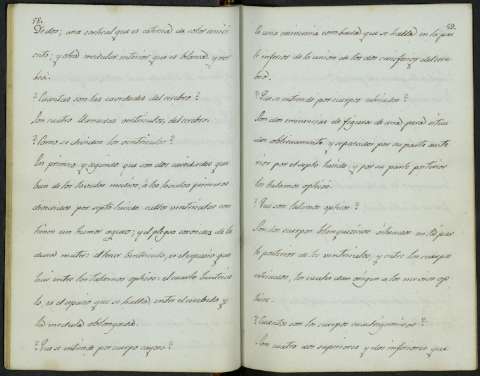 58.
De dos; una cortical que es externa de color ceni-
cito; y otra medular interior que es blanca y ner-
bea.
? Cuantas son las cavidades del cerebro?
Son cuatro llamadas ventriculos, del cerebro.
? Como se dividen los ventriculos?
En primero y segundo que son dos cavidades que
han de los lados medios, á los lados
divididos por septo lucido estos ventriculos con-
tienen un humor aquoso; y el plegue coroides de la
dura mater: el tercer ventriculo, es el espacio que
hai entre los talamos opticos: el cuarto bentricu-
lo, es el espacio que se halla entre el cerebelo y
la medula oblongada.
? Que se entiende por cuerpo cayoso?
59.
Es una eminencia combada que se halla en la par-
te inferior de la union de los dos emisferios del cere-
bro.
? Que se entiende por cuerpos estriados?
Son dos eminencias de figura de una pera situa-
dos oblicuamente, y separados por su parte ante
rior por el septo lucido, y por su parte posterior
los talamos opticos.
? Que son talamos opticos?
Son dos cuerpos blanquecinos situados en la par-
te posterior de los ventriculos, y entre los cuerpos
estriados, los cuales dan origen a los nervios op-
ticos.
? Cuantos son los cuerpos cuadrigeminos?
Son cuatro dos superiores y dos inferiores que